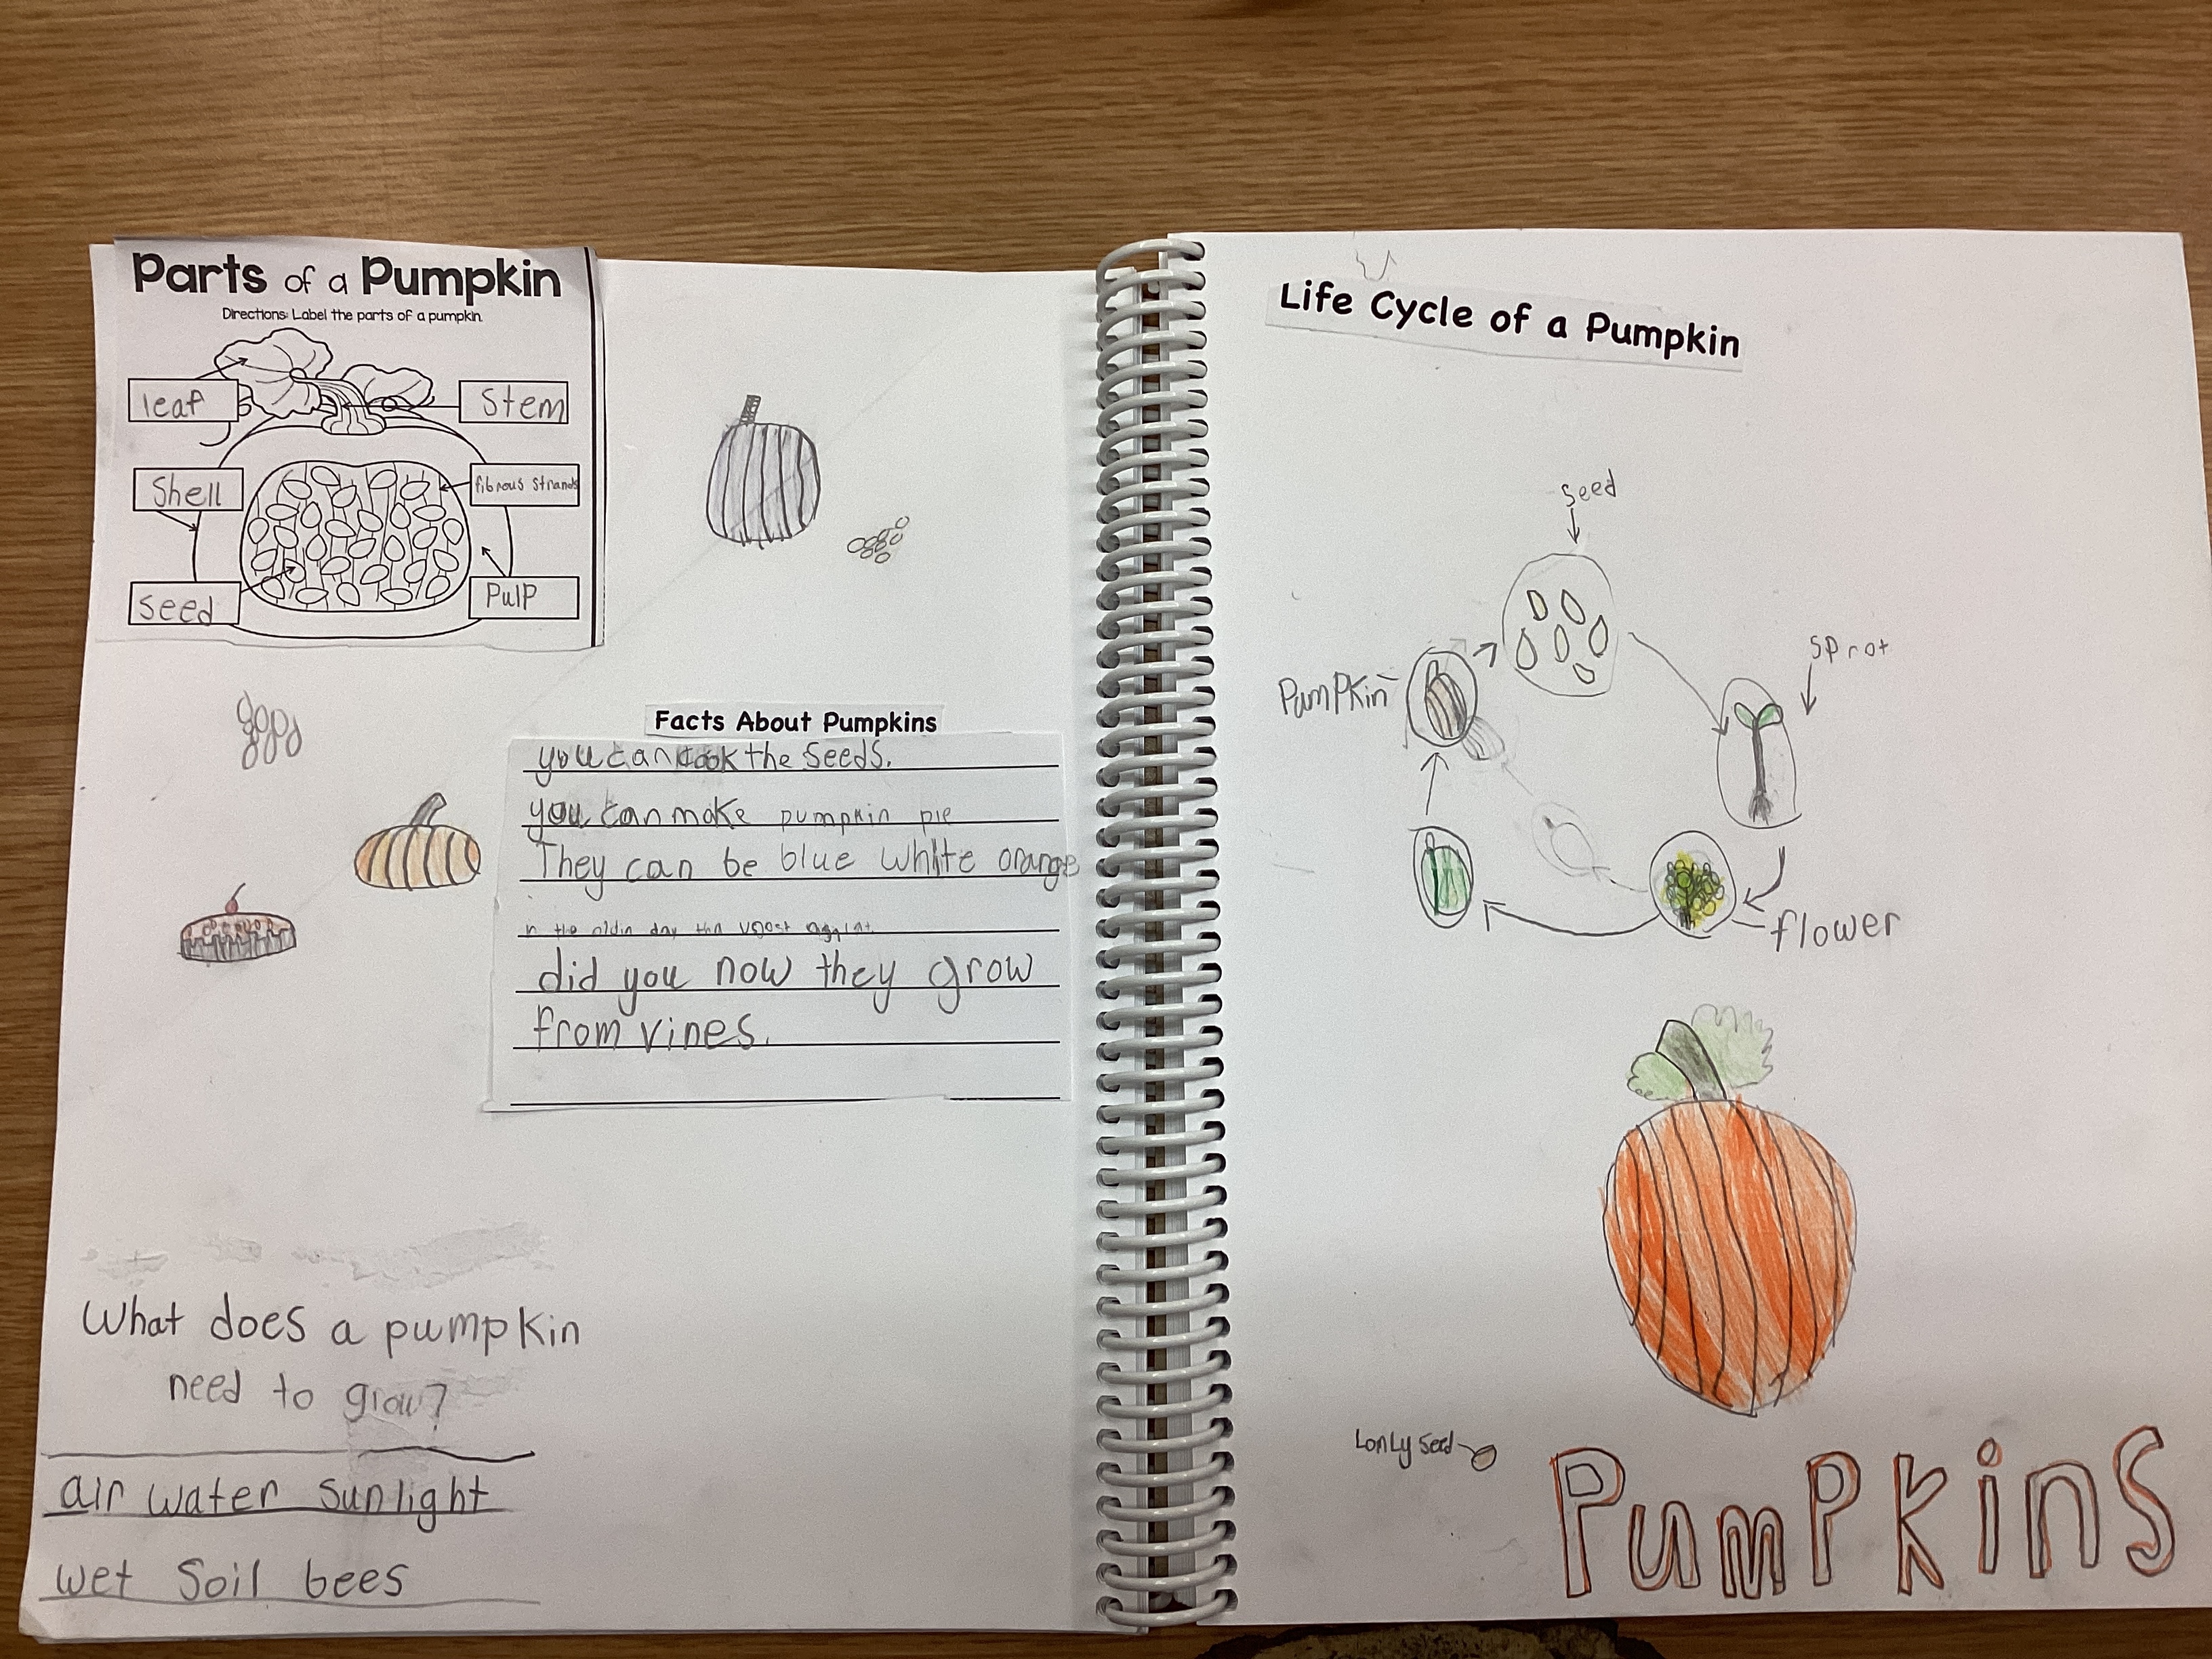 Parts of a Pumpkin
Directions: Label the parts of a pumpkin.
leaf
Stem
Shell
fibrous strands
seed
Pulp
Facts About Pumpkins
you can cook the seeds.
you can make pumpkin pie
They can be blue white orange
in the oldin day
did you now they grow
from vines.
What does a pumpkin
need to grow?
air water sunlight
wet Soil bees
Life Cycle of a Pumpkin
seed
sprot
PumPkin
flower
Lonly seed
PumPkins